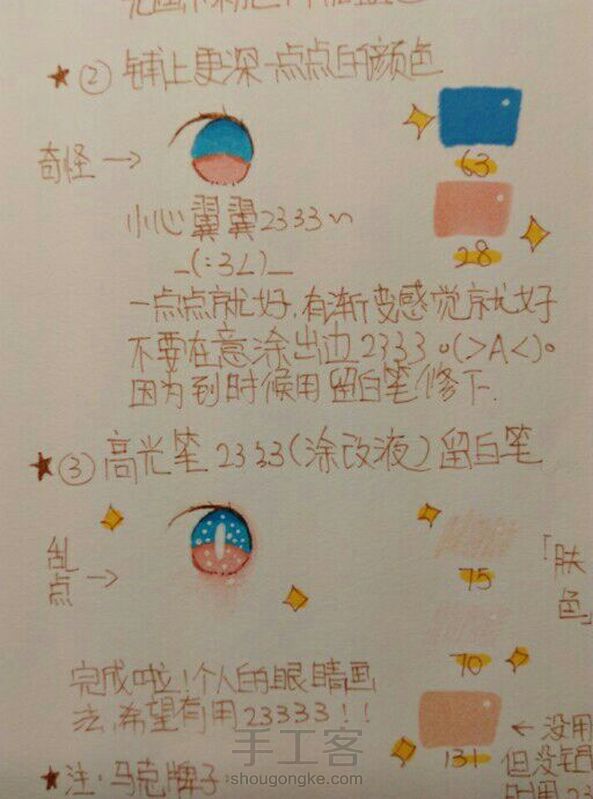 ★② 铺上更深一点点的颜色
奇怪 →
63
小心翼翼2333~
_(:3∠)_
28
一点点就好,有渐变感觉就好
不要在意涂出边2333 o(>A<)o
因为到时候用留白笔修下.
★③ 高光笔2333(涂改液)留白笔
乱点 →
75
「肤色」
70
完成啦!个人的眼睛画
法,希望有用23333!!
131
← 没用
但没
★注:马克牌子:
手工客
shougongke.com